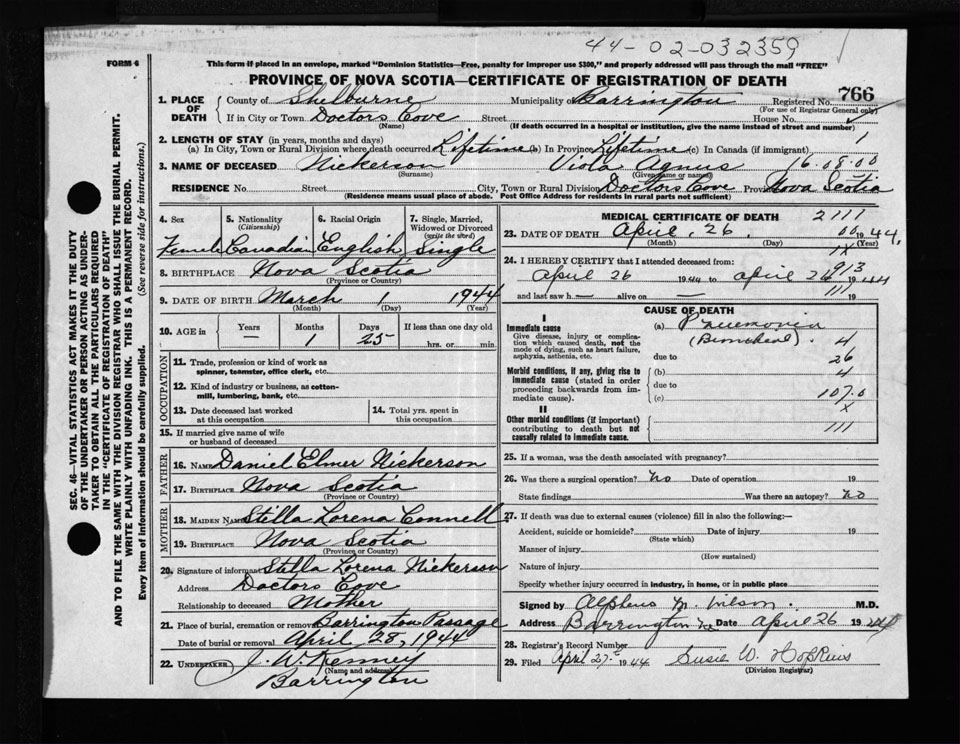 44-02-032359
FORM 6
This form if placed in an envelope, marked "Dominion Statistics—Free, penalty for improper use $300," and properly addressed will pass through the mail "FREE"
PROVINCE OF NOVA SCOTIA—CERTIFICATE OF REGISTRATION OF DEATH
766
1. PLACE OF DEATH
County of Shelburne Municipality of Barrington Registered No.
(For use of Registrar General only)
If in City or Town Doctors Cove Street House No.
(Name) (If death occurred in a hospital or institution, give the name instead of street and number)
2. LENGTH OF STAY (in years, months and days)
(a) In City, Town or Rural Division where death occurred Lifetime (b) In Province Lifetime (c) In Canada (if immigrant)
1
3. NAME OF DECEASED Nickerson Viola Agnus
16.08.00
(Surname) (Given name or names)
RESIDENCE No. Street City, Town or Rural Division Doctors Cove Province Nova Scotia
(Residence means usual place of abode. Post Office Address for residents in rural parts not sufficient)
4. Sex
Female
5. Nationality (Citizenship)
Canadian
6. Racial Origin
English
7. Single, Married, Widowed or Divorced (write the word)
Single
8. BIRTHPLACE Nova Scotia
(Province or Country)
9. DATE OF BIRTH March 1 1944
(Month) (Day) (Year)
10. AGE in
Years —
Months 1
Days 25
If less than one day old
hrs. or min.
OCCUPATION
11. Trade, profession or kind of work as spinner, teamster, office clerk, etc.
12. Kind of industry or business, as cotton-mill, lumbering, bank, etc.
13. Date deceased last worked at this occupation
14. Total yrs. spent in this occupation
15. If married give name of wife or husband of deceased
FATHER
16. NAME Daniel Elmer Nickerson
17. BIRTHPLACE Nova Scotia
(Province or Country)
MOTHER
18. MAIDEN NAME Stilla Lorena Connell
19. BIRTHPLACE Nova Scotia
(Province or Country)
20. Signature of informant Stilla Lorena Nickerson
Address Doctors Cove
Relationship to deceased Mother
21. Place of burial, cremation or removal Barrington Passage
Date of burial or removal April 28, 1944
22. UNDERTAKER J. W. Kenney
(Name and address)
Barrington
MEDICAL CERTIFICATE OF DEATH
2111
23. DATE OF DEATH April, 26 1944,
00
(Month) (Day) (Year)
1X
24. I HEREBY CERTIFY that I attended deceased from:
913
April 26 1944 to April 26 1944
and last saw h — alive on — 19
111
CAUSE OF DEATH
I
Immediate cause
Give disease, injury or complication which caused death, not the mode of dying, such as heart failure, asphyxia, asthenia, etc.
(a) Pneumonia
(Bronchial)
4
due to
26
Morbid conditions, if any, giving rise to immediate cause (stated in order proceeding backwards from immediate cause).
(b)
4
due to
(c)
107.0
X
II
Other morbid conditions (if important) contributing to death but not causally related to immediate cause.
111
25. If a woman, was the death associated with pregnancy?
26. Was there a surgical operation? No Date of operation 19
State findings Was there an autopsy? No
27. If death was due to external causes (violence) fill in also the following:—
Accident, suicide or homicide? Date of injury 19
(State which)
Manner of injury
(How sustained)
Nature of injury
Specify whether injury occurred in industry, in home, or in public place
Signed by Alpheus M. Wilson. M.D.
Address Barrington Date April 26 1944
28. Registrar's Record Number
29. Filed April 27 1944 Susie W. Hopkins
(Division Registrar)
SEC. 46—VITAL STATISTICS ACT MAKES IT THE DUTY OF THE UNDERTAKER OR PERSON ACTING AS UNDERTAKER TO OBTAIN ALL THE PARTICULARS REQUIRED IN THE "CERTIFICATE OF REGISTRATION OF DEATH"
AND TO FILE THE SAME WITH THE DIVISION REGISTRAR WHO SHALL ISSUE THE BURIAL PERMIT.
WRITE PLAINLY WITH UNFADING INK. THIS IS A PERMANENT RECORD.
Every item of information should be carefully supplied. (See reverse side for instructions.)